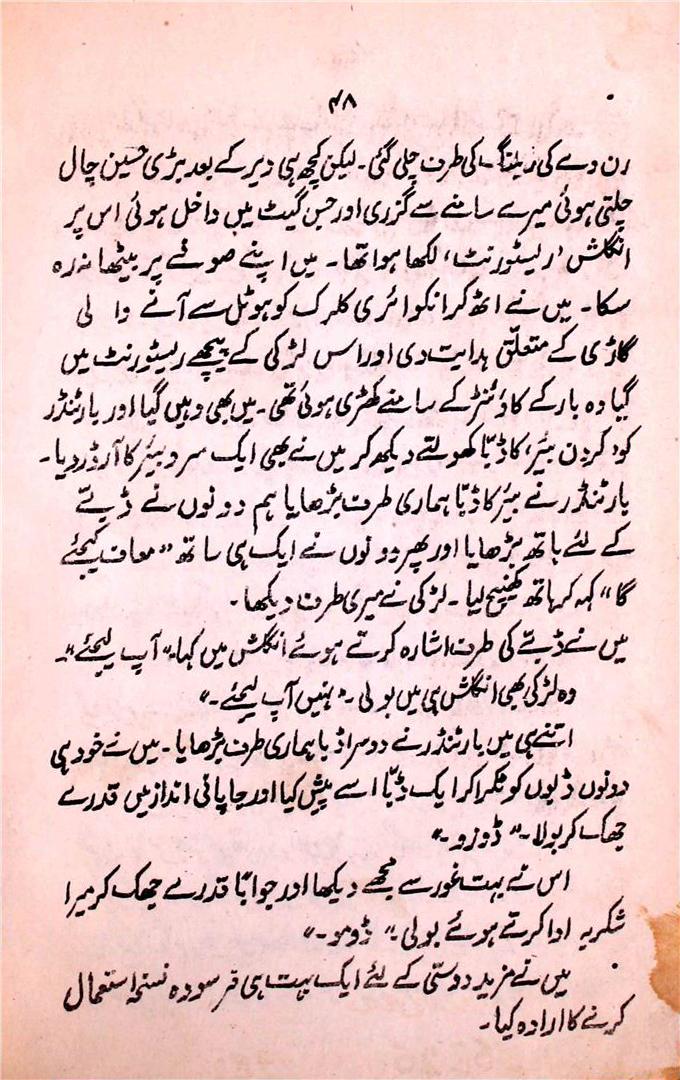 ۴۸
رن دے کی ریلنگ کی طرف چلی گئی۔ لیکن کچھ ہی دیر کے بعد بڑی حسین چال
چلتی ہوئی میرے سامنے سے گزری اور جس گیٹ میں داخل ہوئی اس پر
انگلش ’ریسٹورنٹ‘ لکھا ہوا تھا۔ میں اپنے صوفے پر بیٹھا نہ رہ
سکا۔ میں نے اٹھ کر انکوائری کلرک کو ہوٹل سے آنے والی
گاڑی کے متعلق ہدایت دی اور اس لڑکی کے پیچھے ریسٹورنٹ میں
گیا وہ بار کے کاؤنٹر کے سامنے کھڑی ہوئی تھی۔ میں بھی وہیں گیا اور بارٹنڈر
کو ’کردن بیئر‘ کا ڈبّا کھولتے دیکھ کر میں نے بھی ایک سرد بیئر کا آرڈر دیا۔
بارٹنڈر نے بیئر کا ڈبّا ہماری طرف بڑھایا ہم دونوں نے ڈبّے
کے لئے ہاتھ بڑھایا اور پھر دونوں نے ایک ہی ساتھ ”معاف کیجئے
گا“ کہہ کر ہاتھ کھینچ لیا۔ لڑکی نے میری طرف دیکھا۔
میں نے ڈبّے کی طرف اشارہ کرتے ہوئے انگلش میں کہا۔ ”آپ لیجئے“۔
وہ لڑکی بھی انگلش ہی میں بولی۔ ”نہیں آپ لیجئے۔“
اتنے ہی میں بارٹنڈر نے دوسرا ڈبا ہماری طرف بڑھایا۔ میں نے خود ہی
دونوں ڈبوں کو ٹکرا کر ایک ڈبّا اسے پیش کیا اور جاپانی انداز میں قدرے
جھک کر بولا۔ ”ڈوزو۔“
اس نے بہت غور سے مجھے دیکھا اور جواباً قدرے جھک کر میرا
شکریہ ادا کرتے ہوئے بولی۔ ”ڈومو۔“
میں نے مزید دوستی کے لئے ایک بہت ہی فرسودہ نسخہ استعمال
کرنے کا ارادہ کیا۔